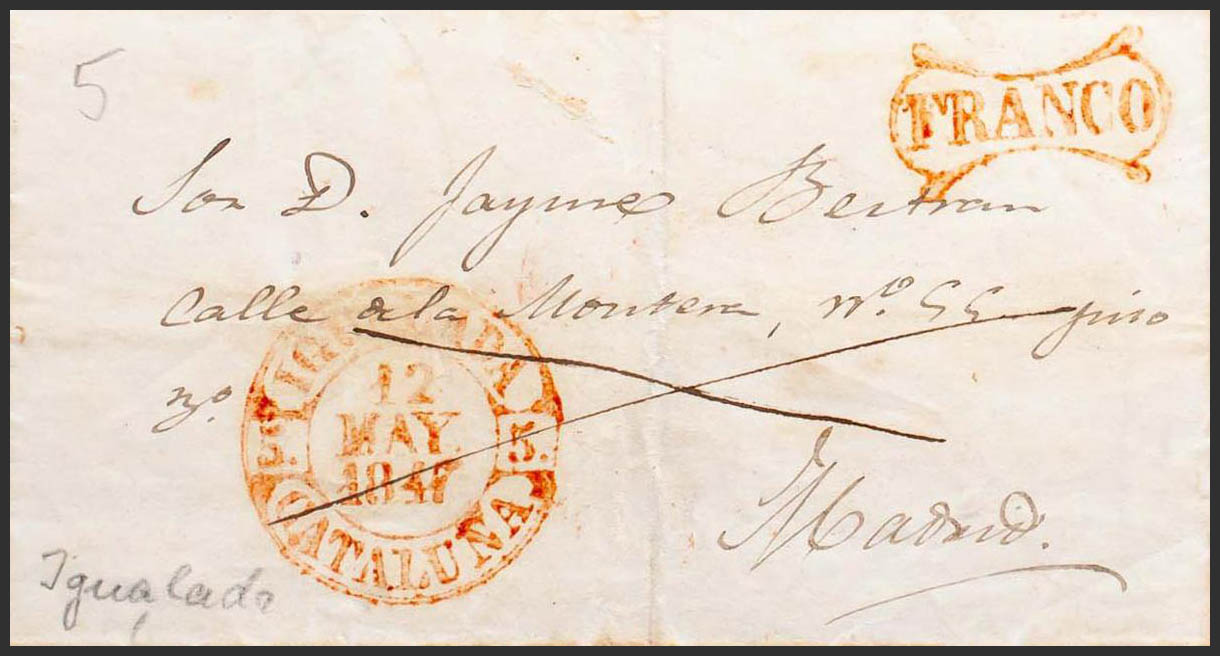 5
FRANCO
Sor D. Jayme Bertran
Calle de la Montera, nº. 55 piso
12
MAY.
1847
5.
CATALUNA
Madrid.
Igualada